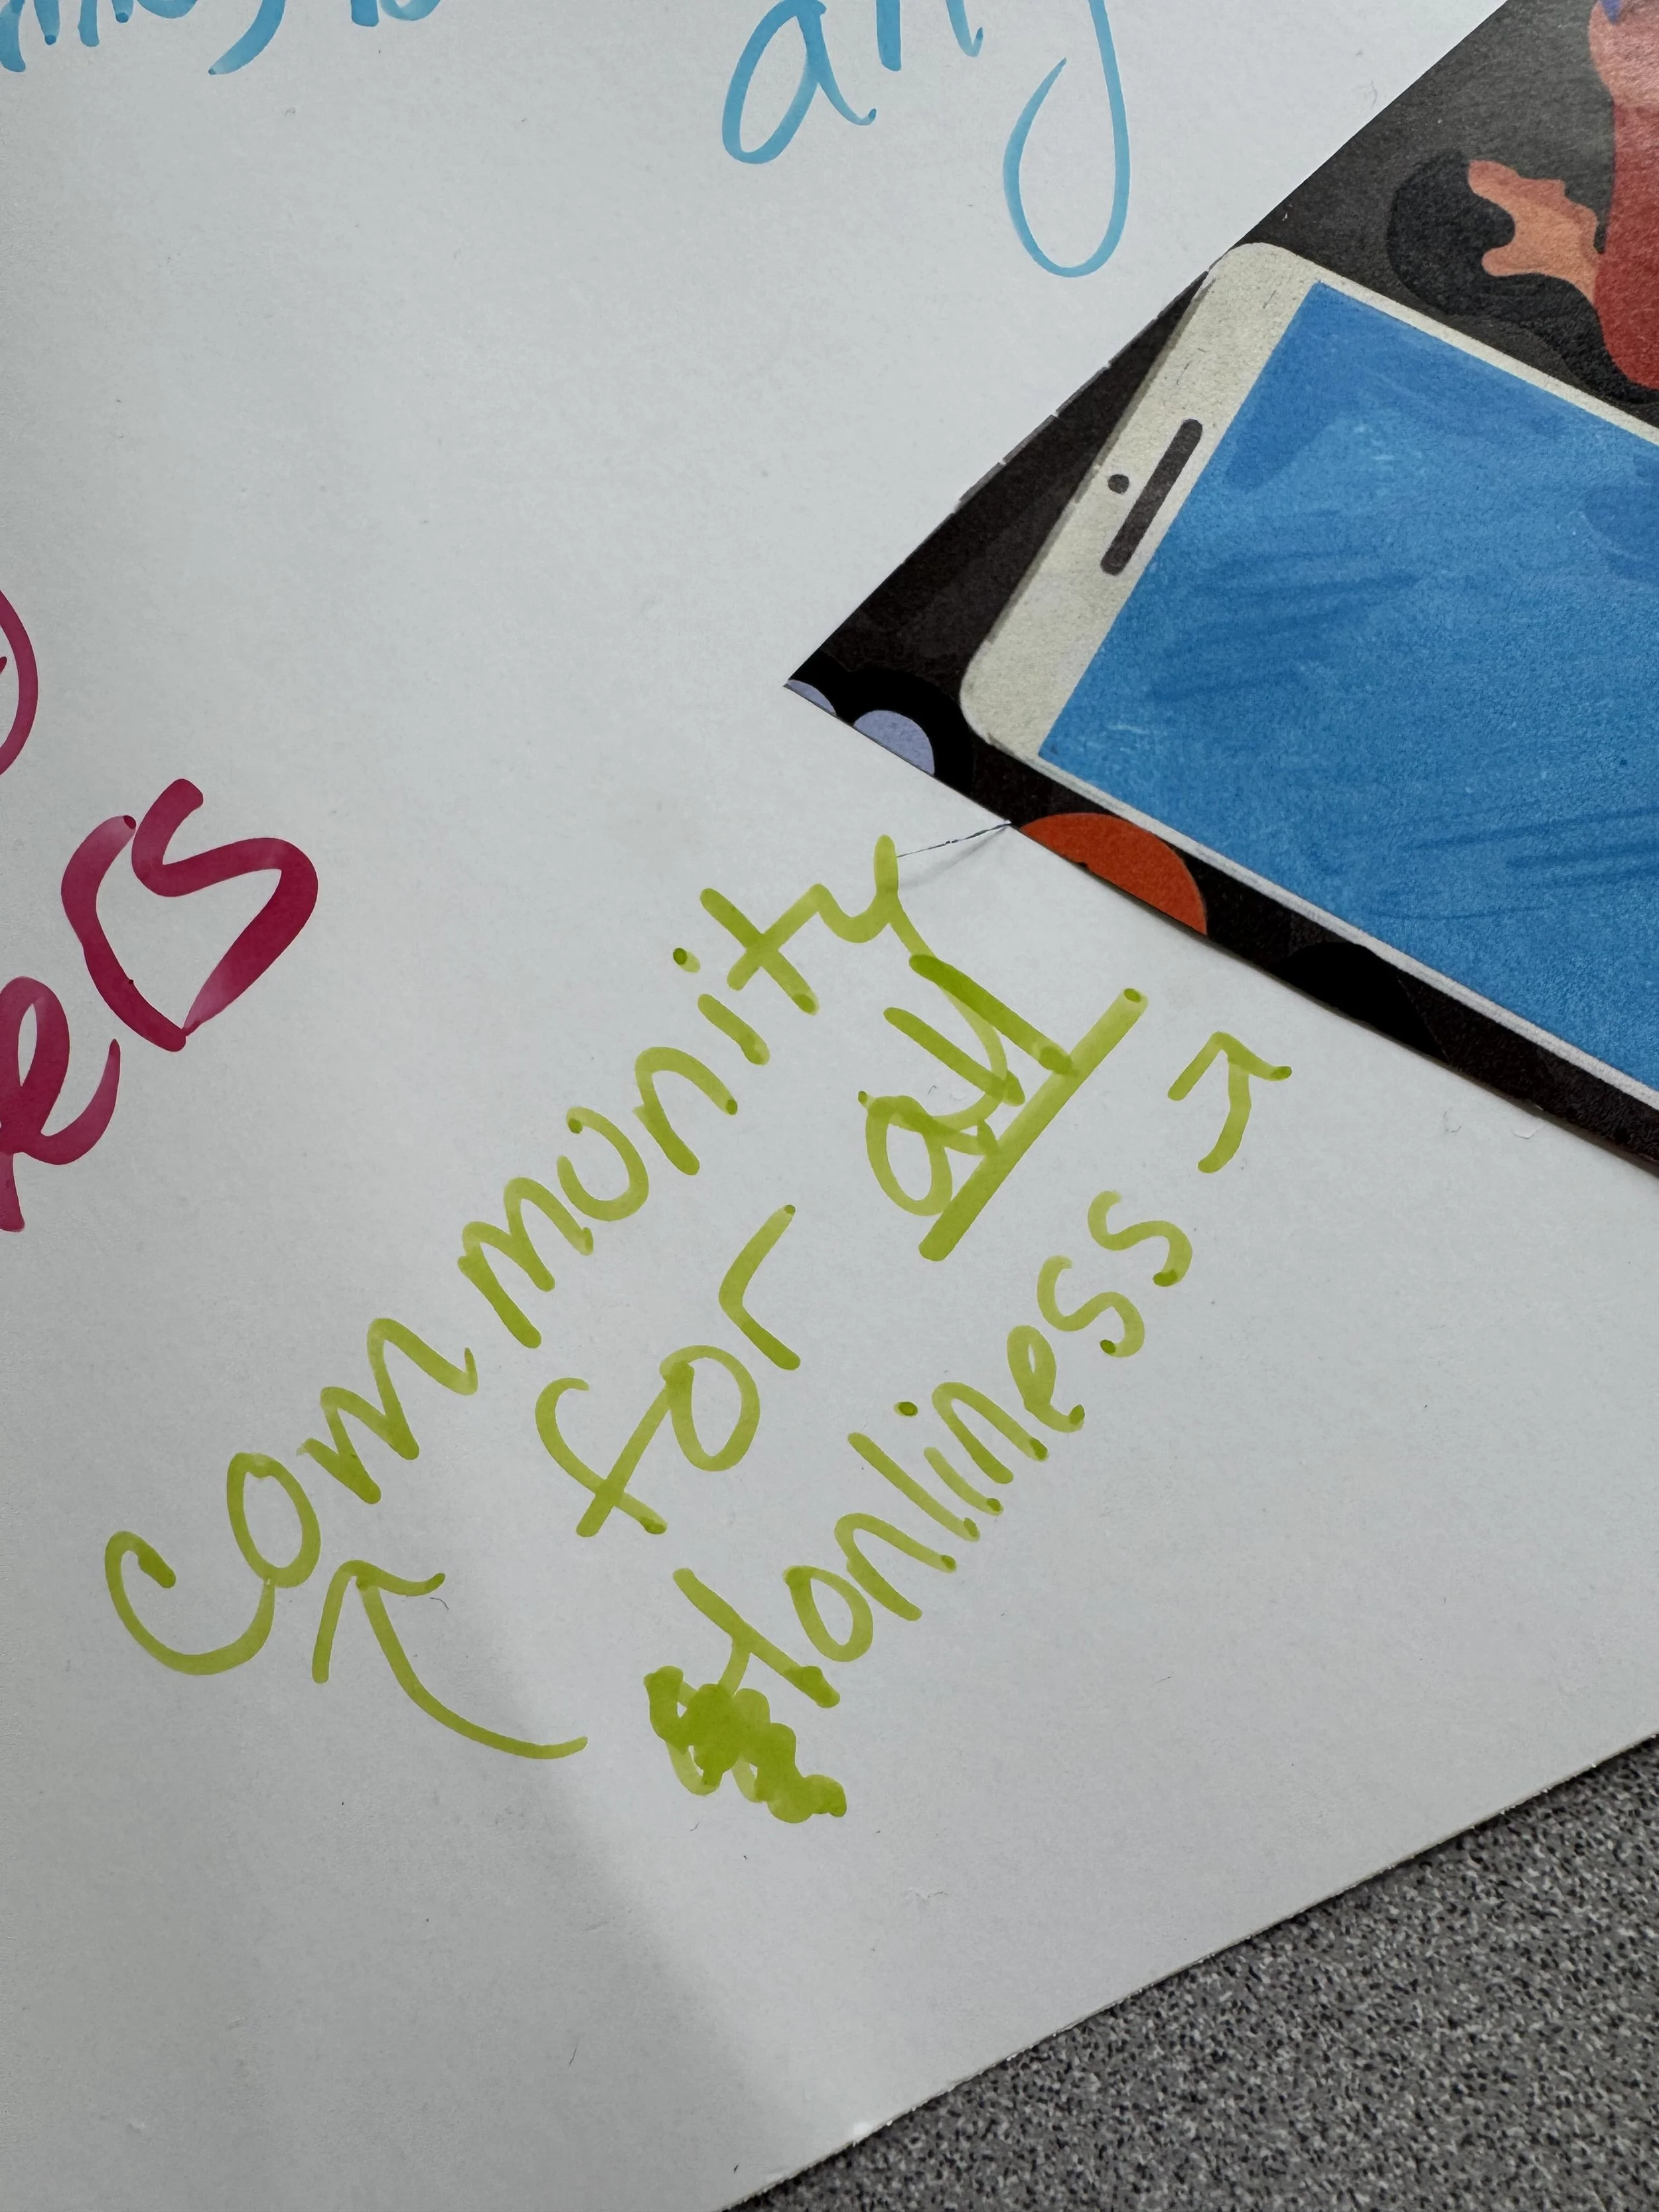 any
ers
commonity
for all
lonliness